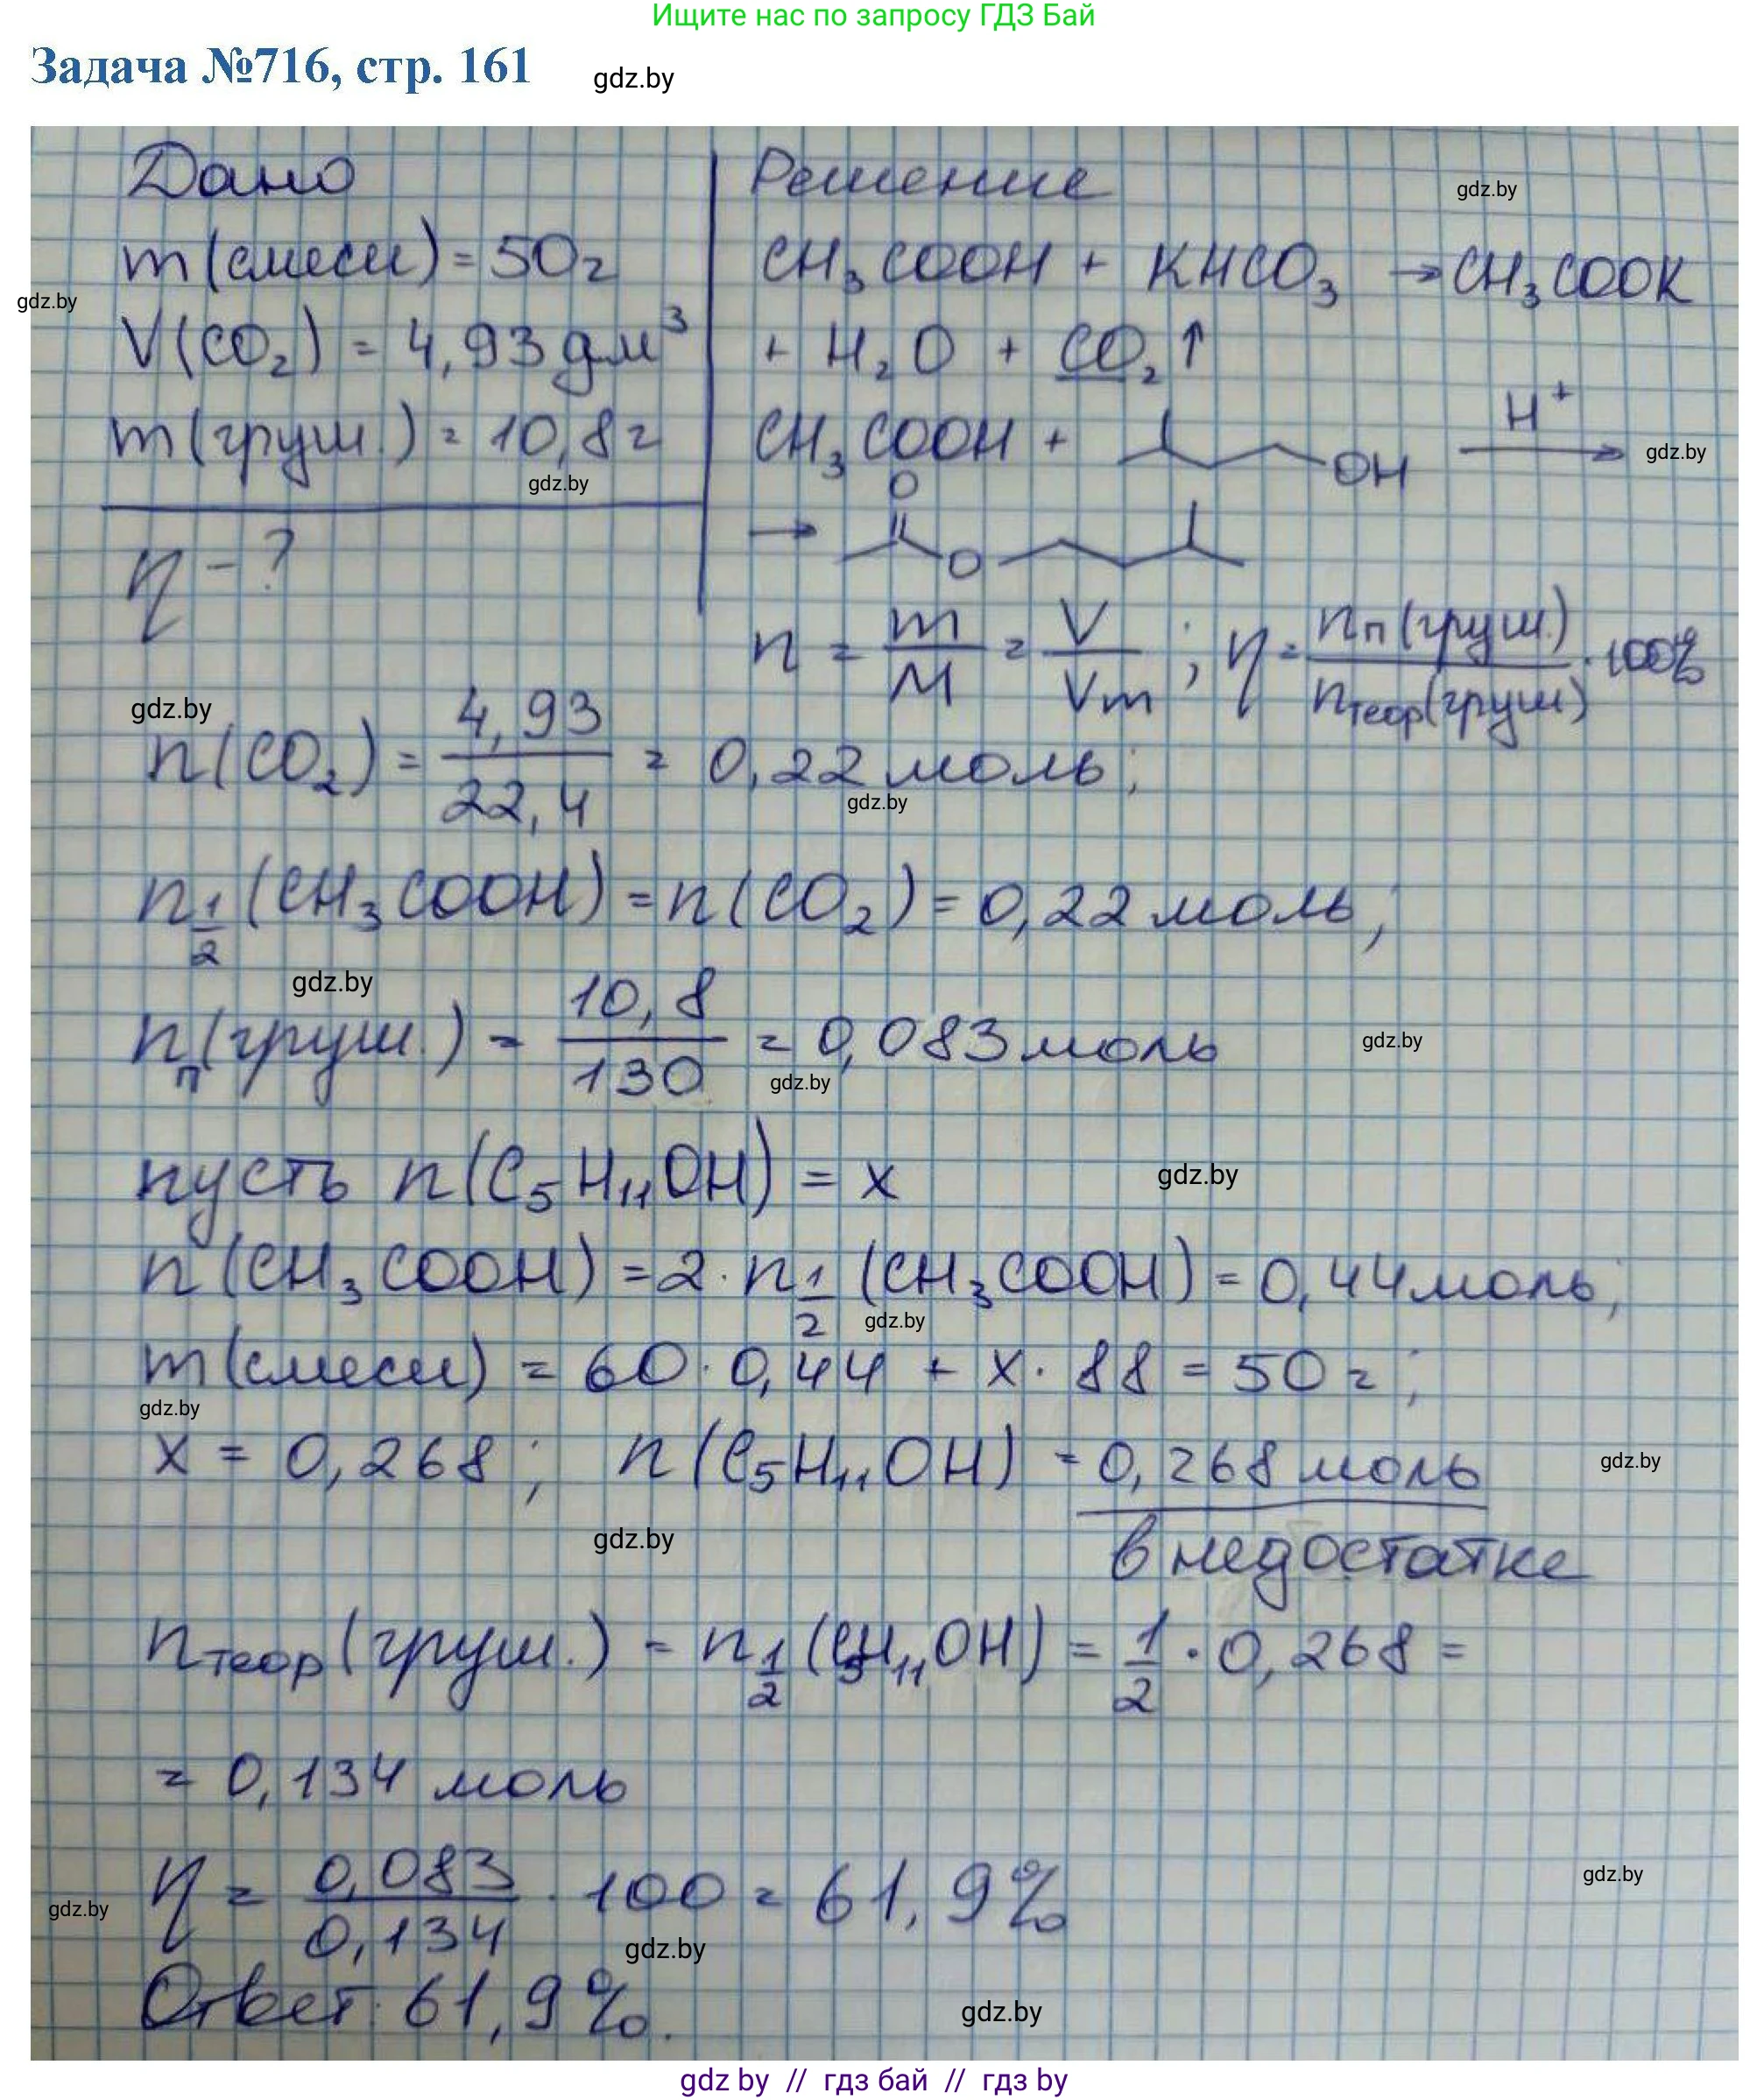 Ищите нас по запросу ГДЗ Бай
Задача №716, стр. 161 gdz.by
Дано
m(смеси) = 50г
gdz.by
V(CO₂) = 4,93 дм³
m(груш.) = 10,8г
gdz.by
η - ?
Решение
gdz.by
CH₃COOH + KHCO₃ → CH₃COOK
+ H₂O + CO₂↑
CH₃COOH + OH H⁺ →
gdz.by
→ O O
n = m/M = V/Vm ; η = nп(груш.)/nтеор(груш) · 100%
gdz.by
n(CO₂) = 4,93/22,4 = 0,22 моль;
gdz.by
n 1/2 (CH₃COOH) = n(CO₂) = 0,22 моль;
gdz.by
nп(груш.) = 10,8/130 = 0,083 моль
gdz.by
gdz.by
пусть n(C₅H₁₁OH) = x
gdz.by
n(CH₃COOH) = 2 · n 1/2 (CH₃COOH) = 0,44 моль;
gdz.by
m(смеси) = 60 · 0,44 + x · 88 = 50 г;
gdz.by
x = 0,268; n(C₅H₁₁OH) = 0,268 моль
gdz.by
gdz.by
в недостатке
nтеор(груш.) = n 1/2 (C₅H₁₁OH) = 1/2 · 0,268 =
= 0,134 моль
gdz.by
η = 0,083/0,134 · 100 = 61,9%
gdz.by
gdz.by
Ответ: 61,9%.
gdz.by
gdz by // гдз бай // гдз by